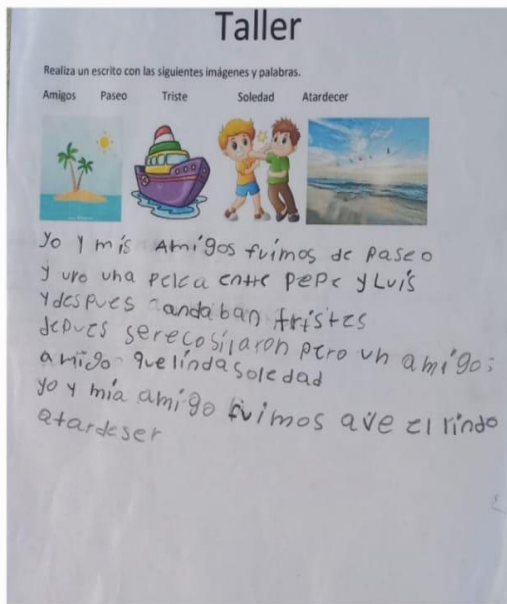 Taller
Realiza un escrito con las siguientes imágenes y palabras.
Amigos Paseo Triste Soledad Atardecer
yo y mis Amigos fuimos de paseo
y uvo una pelea entre pepe y Luis
y despues andaban tristes
depues serecosilaron pero un amigo:
amigo que linda soledad
yo y mia amigo fuimos a ve el rindo
atardeser